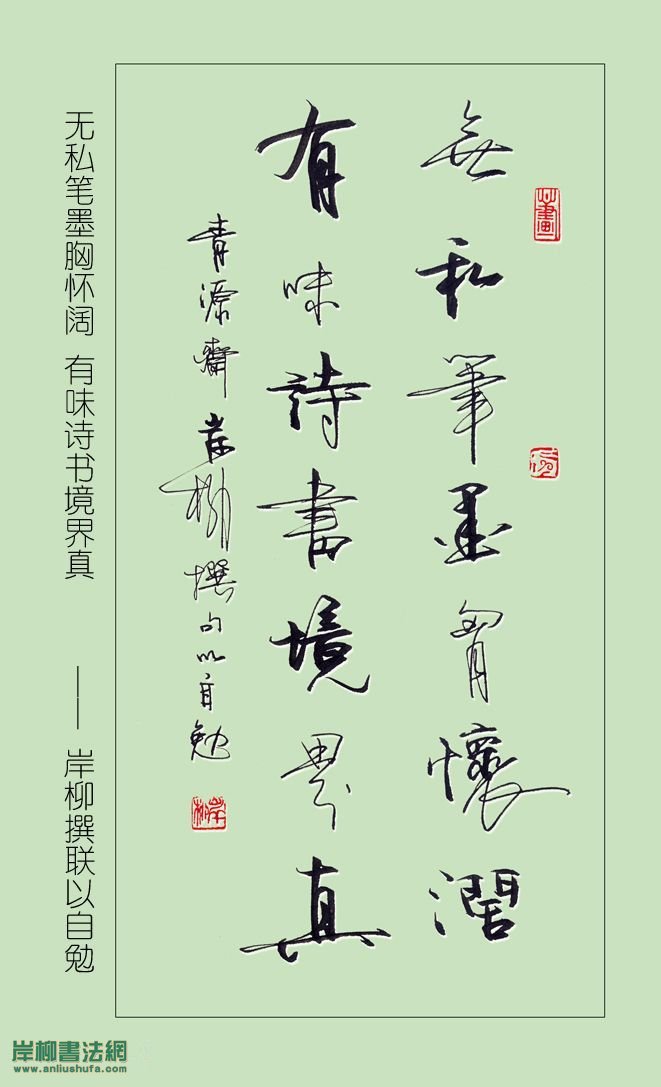 無私筆墨胷懷濶
有味詩書境界真
青源齋岸柳撰句以自勉
岸柳
无私笔墨胸怀阔 有味诗书境界真 —— 岸柳撰联以自勉
岸柳書法網
www.anliushufa.com